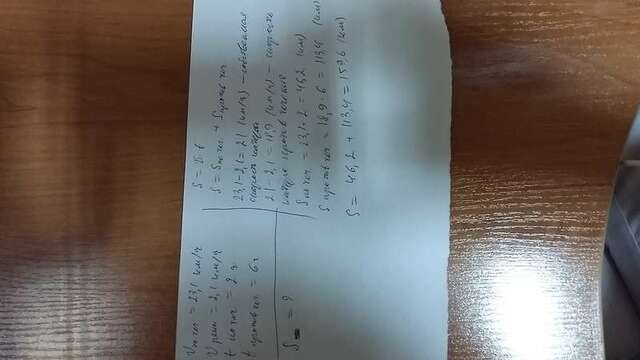 V по теч = 23,1 км/ч
V реки = 2,1 км/ч
t по теч = 2 ч
t против теч = 6 ч
S = ?
S = V·t
S = S по теч + S против теч
23,1-2,1=21 (км/ч) – собственная
скорость катера
21-2,1=18,9 (км/ч) – скорость
катера против течения
S по теч = 23,1·2=46,2 (км)
S против теч = 18,9·6=113,4 (км)
S = 46,2+113,4=159,6 (км)